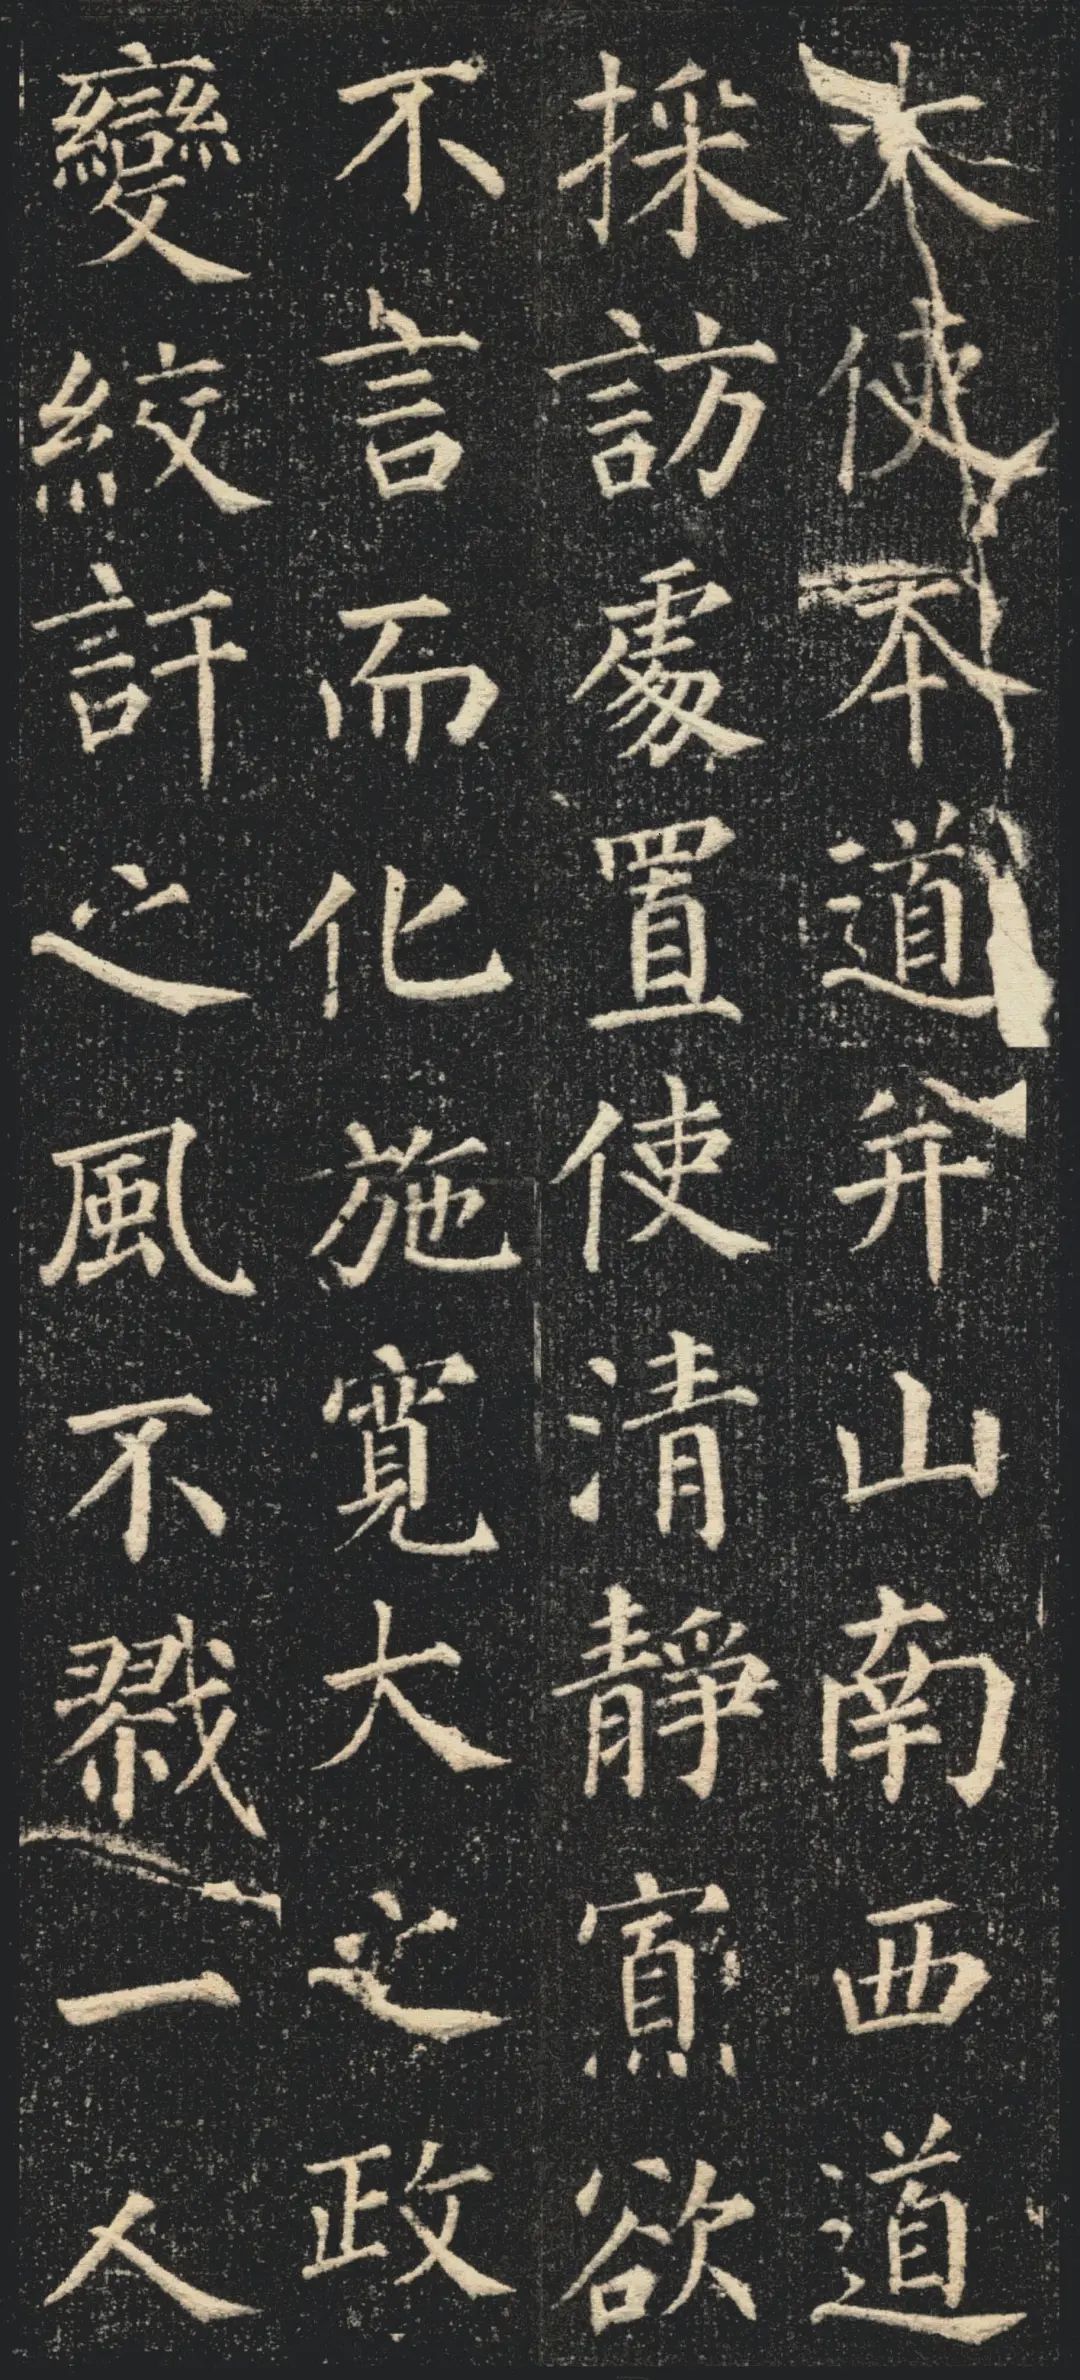 使本道并山南西道
採訪處置使清靜寡欲
不言而化施寬大之政
變絞訐之風不戮一人